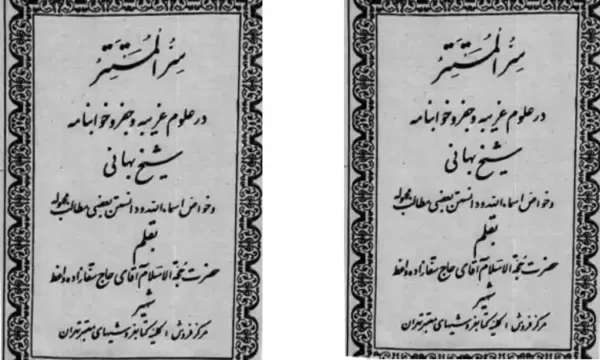 سِرُّ الْمُسْتَتِرْ
در علوم غریبه و جفر و خوابنامه
شیخ بهائی
و خواص اسماء الله و دانستن بعضی مطالب مجهوله
بقلم
حضرت حجة الاسلام آقای حاج سقازاده واعظ
شهیر
مرکز فروش : کلیه کتابفروشیهای معتبر تهران
سِرُّ الْمُسْتَتِرْ
در علوم غریبه و جفر و خوابنامه
شیخ بهائی
و خواص اسماء الله و دانستن بعضی مطالب مجهوله
بقلم
حضرت حجة الاسلام آقای حاج سقازاده واعظ
شهیر
مرکز فروش : کلیه کتابفروشیهای معتبر تهران